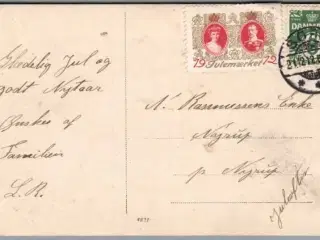 Glædelig Jul og
godt Nytaar
Ønskes af
Familien
L. R.
19 Julemærket 12
DANMARK
N. Rasmussens Enke
Nyrup
p Nyrup
Juleaften